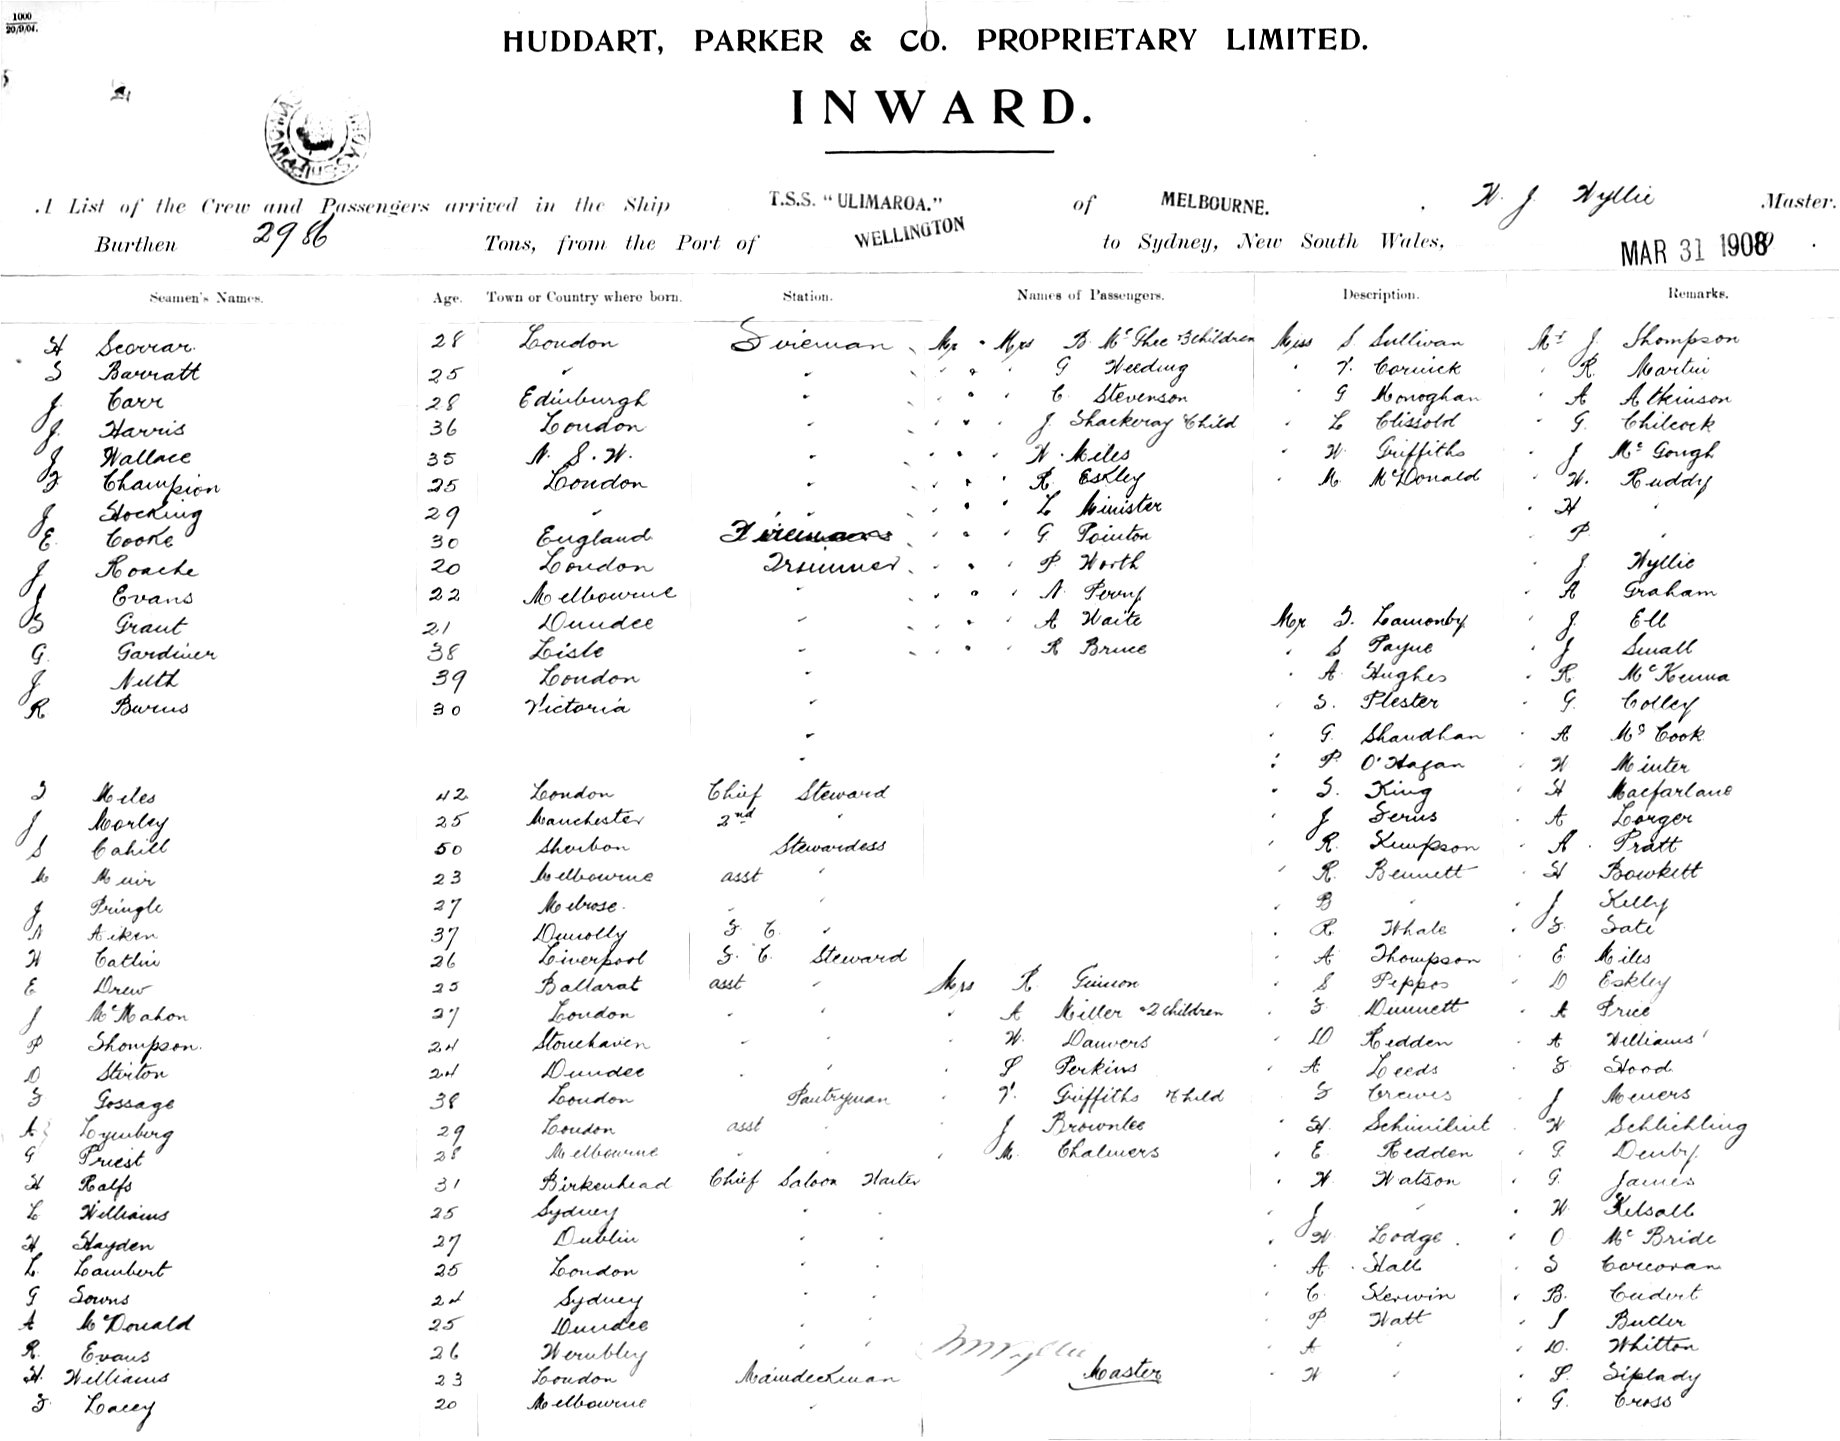 1000
20/9/04.
HUDDART, PARKER & CO. PROPRIETARY LIMITED.
INWARD.
A List of the Crew and Passengers arrived in the Ship T.S.S. "ULIMAROA." of MELBOURNE. W. J. Wyllie Master.
Burthen 2986 Tons, from the Port of WELLINGTON to Sydney, New South Wales, MAR 31 1908
Seamen's Names. Age. Town or Country where born. Station. Names of Passengers. Description. Remarks.
H 28 London Fireman Mr " Mrs B. McGhee 3 children Miss S Sullivan Mr J. Thompson
S Barratt 25 " " " " " G Weeding " T. Cornick " R. Martin
J. Carr 28 Edinburgh " " " " C. Stevenson " G Monoghan " A Atkinson
J. Harris 36 London " " " " J. Shackeray Child " L Clissold " G. Chilcock
J Wallace 35 N. S. W. " " " " W. Miles " W. Griffiths " J McGough
F Champion 25 London " " " " R. Eskley " M McDonald " W. Ruddy
J Hocking 29 " " " " " " L Minister " H "
E. Cooke 30 England Firemans " " " G. Pointon " P "
J Roache 20 London Trimmer " " " P Worth J Wyllie
J Evans 22 Melbourne " " " " N. Perry A Graham
S Grant 21 Dundee " " " " A Waite Mr F. Lamonby J. Ell
G. Gardiner 38 Lisle " " " " R Bruce " S Payne " J Small
J Nuth 39 London " " A. Hughes " R McKenna
R Burns 30 Victoria " " S. Plester " G. Colley
" " G. Shandhan " A McCook
" " P. O'Hagan " W Minter
S Miles 42 London Chief Steward " S. King " H Macfarlane
J Morley 25 Manchester 2nd " " J Ferris " A Lorger
S Cahill 50 Stewardess " R. Kempson " A. Pratt
M Muir 23 Melbourne asst " " R. Bennett " H Bowkett
J Pringle 27 Melrose. " " " B " " J Kelly
N Aiken 37 Dunolly F. C. " " R. Whale " F. Tate
W Catlin 26 Liverpool F. C. Steward " A Thompson " E Miles
E Drew 25 Ballarat asst " Mrs R. Guinon " S Peppos " D Eskley
J McMahon 27 London " " " A Miller + 2 children " F Dunnett " A Price
P Thompson. 24 Stonehaven " " " W. Danvers " D Redden " A Williams
D Stirton 24 Dundee " " " S Perkins " A Leeds " F Hood
F Gossage 38 London Pantryman " T. Griffiths Child " F Crewes " J Meners
A Lynberg 29 London asst " " J Brownlee " H. " W Schlichling
G Priest 28 Melbourne " " " M. Chalmers " E Redden " G Denby.
H Ralfs 31 Birkenhead Chief Saloon Waiter " W Watson " G. James
L Williams 25 Sydney " " " J " " W. Kelsall
H Hayden 27 Dublin " " " W Lodge. " O McBride
L. Lambert 25 London " " " A. Hall " S Corcoran
G Sowns 24 Sydney " " " C. Kerwin " B.
A McDonald 25 Dundee " " " P Watt " S Butler
R. Evans 26 Wembley " " W J Wyllie " A " " D. Whitton
H. Williams 23 London Maindeckman Master " W " " S. Siplady
F Lacey 20 Melbourne " " G. Cross